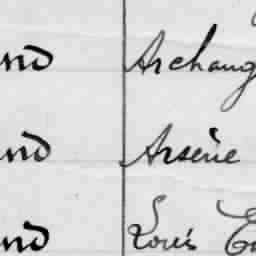 nd Archang
nd Arsène
nd Louis